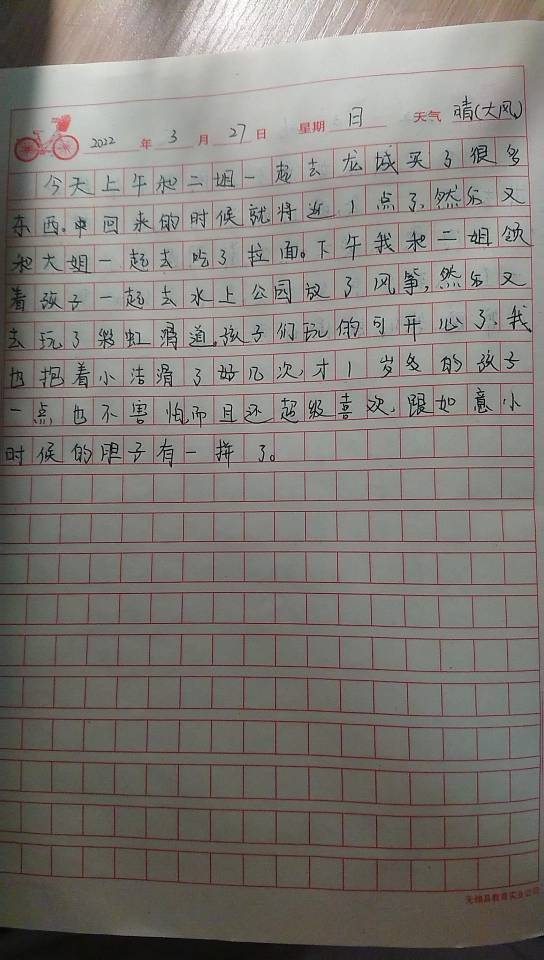 2022 年 3 月 27 日 星期 日 天气 晴(大风)
今天上午和二姐一起去龙城买了很多
东西。中回来的时候就将近1点了,然后又
和大姐一起去吃了拉面。下午我和二姐领
着孩子一起去水上公园放了风筝,然后又
去玩了彩虹滑道。孩子们玩的可开心了,我
也抱着小洁滑了好几次,才1岁多的孩子
一点也不害怕而且还超级喜欢,跟如意小
时候的胆子有一拼了。
无锦县教育实业公司